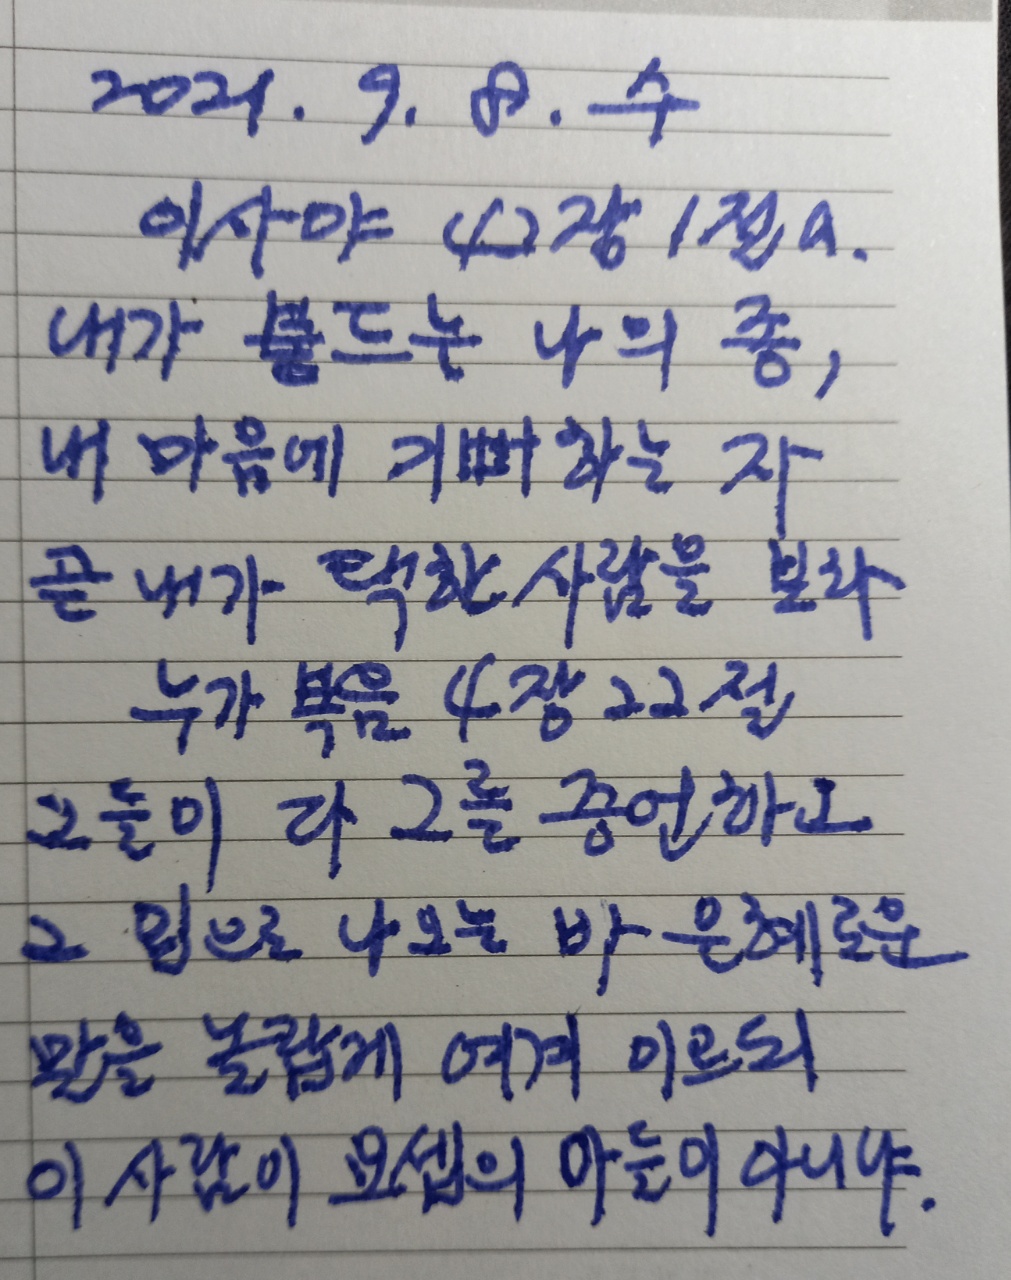 2021. 9. 8. 수
이사야 42장 1절a.
내가 붙드는 나의 종,
내 마음에 기뻐하는 자
곧 내가 택한 사람을 보라
누가복음 4장 22절
그들이 다 그를 증언하고
그 입으로 나오는 바 은혜로운
말을 놀랍게 여겨 이르되
이 사람이 요셉의 아들이 아니냐.